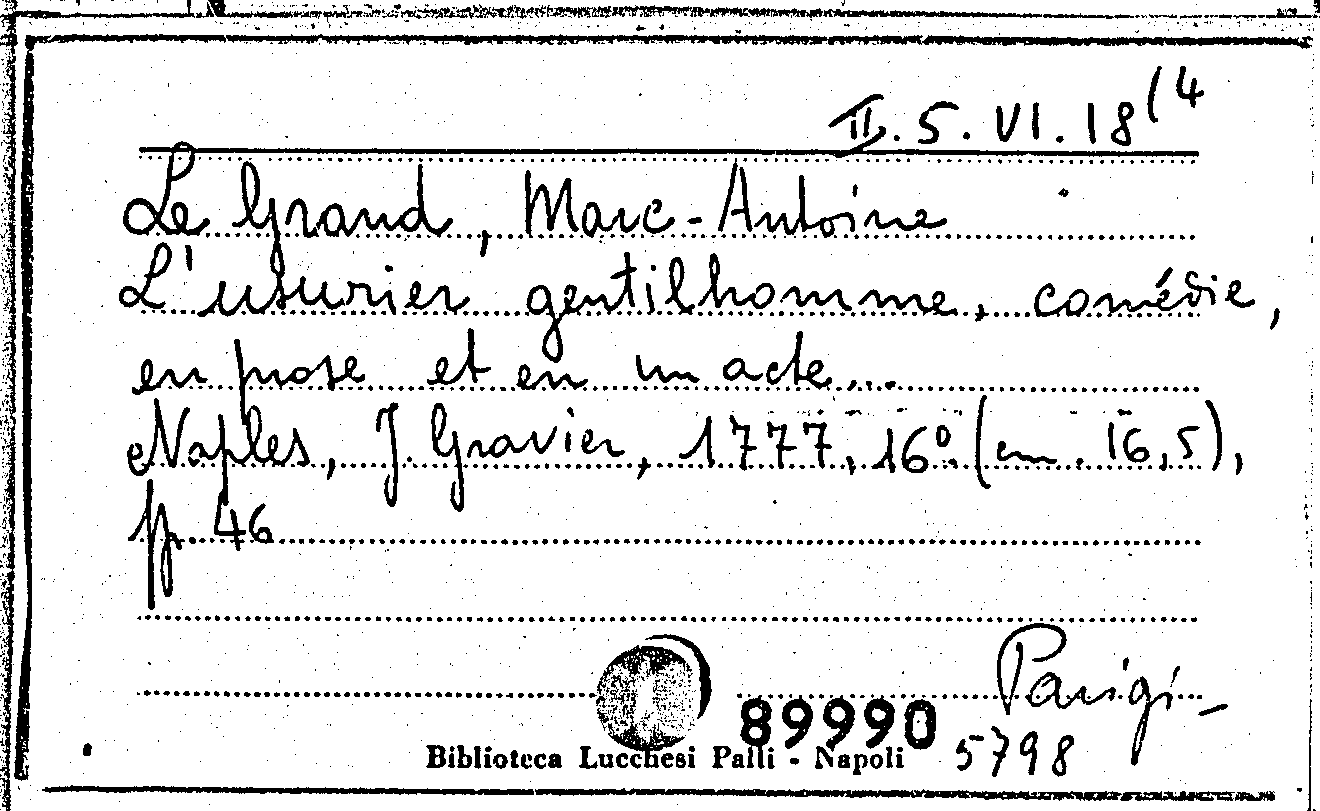 II. 5. VI. 18(4
Le Grand, Marc-Antoine
L'usurier gentilhomme, comédie,
en prose et en un acte...
Naples, J. Gravier, 1777, 16º. (cm. 16,5),
pp. 46
Parigi-
89990
5798
Biblioteca Lucchesi Palli - Napoli